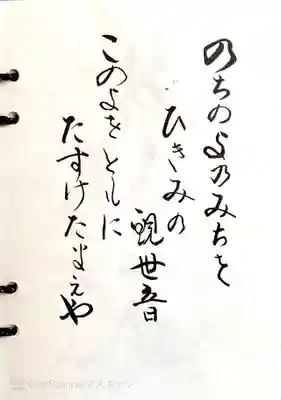 のちのよのみちを
ひきみの
観世音
このよをともに
たすけたまえや
CamScannerでスキャン